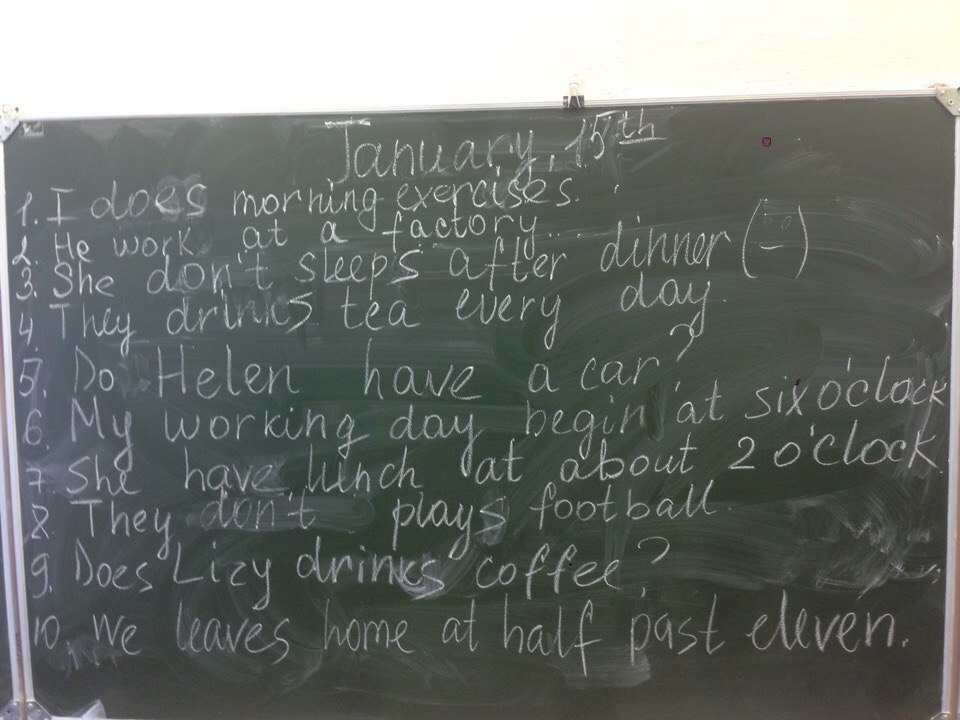 January, 15th
1. I does morning exercises.
2. He work at a factory...
3. She don't sleeps after dinner
4. They drinks tea every day.
5. Do Helen have a car?
6. My working day begin at six o'clock
7. She have lunch at about 2 o'clock.
8. They don't plays football.
9. Does Lizy drinks coffee?
10. We leaves home at half past eleven.